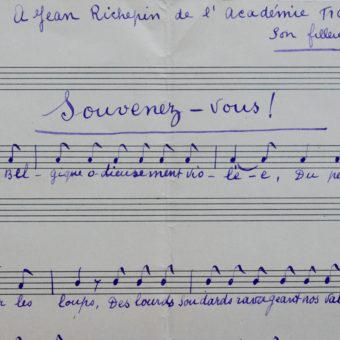 A Jean Richepin de l'Académie
Son filleu
Souvenez-vous!
Bel-gique odieusement vio-lé-e, Du pe
les loups, Des lourds soudards ravageant nos val